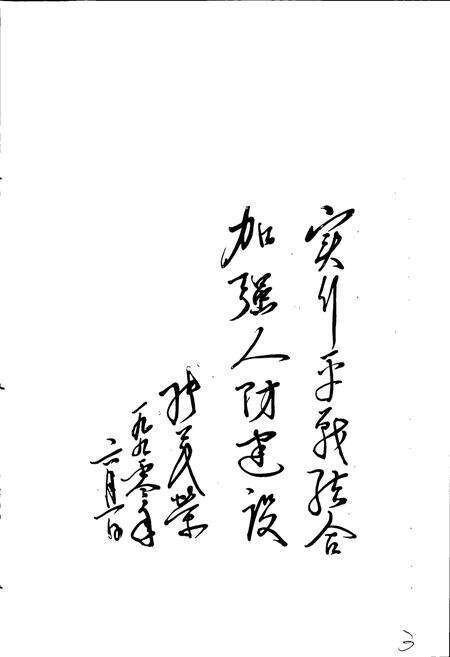 实行平战结合
加强人防建设
张茂荣
一九九零年
六月一日
3